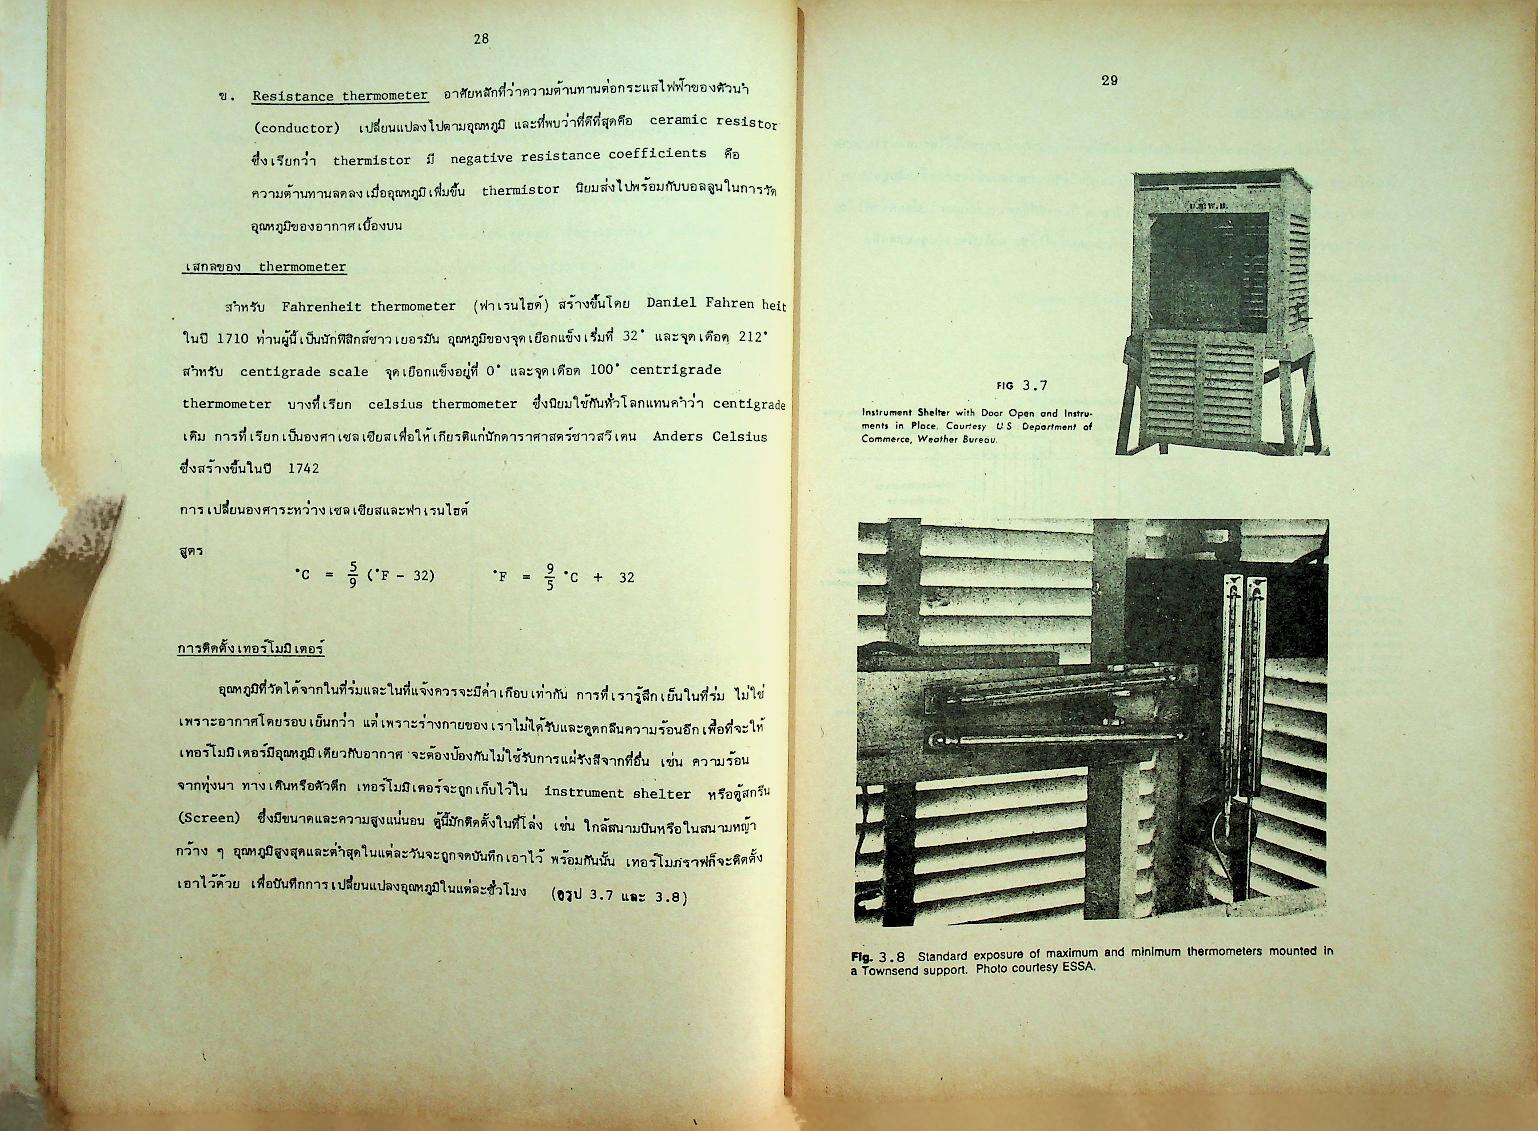 28
ข. Resistance thermometer อาศัยหลักที่ว่าความต้านทานต่อกระแสไฟฟ้าของตัวนำ
(conductor) เปลี่ยนแปลงไปตามอุณหภูมิ และที่พบว่าที่ดีที่สุดคือ ceramic resistor
ซึ่งเรียกว่า thermistor มี negative resistance coefficients คือ
ความต้านทานลดลงเมื่ออุณหภูมิเพิ่มขึ้น thermistor นิยมส่งไปพร้อมกับบอลลูนในการวัด
อุณหภูมิของอากาศเบื้องบน
เสกลของ thermometer
สำหรับ Fahrenheit thermometer (ฟาเรนไฮต์) สร้างขึ้นโดย Daniel Fahren heit
ในปี 1710 ท่านผู้นี้เป็นนักฟิสิกส์ชาวเยอรมัน อุณหภูมิของจุดเยือกแข็งเริ่มที่ 32° และจุดเดือด 212°
สำหรับ centigrade scale จุดเยือกแข็งอยู่ที่ 0° และจุดเดือด 100° centrigrade
thermometer บางที่เรียก celsius thermometer ซึ่งนิยมใช้กันทั่วโลกแทนคำว่า centigrade
เดิม การที่เรียกเป็นองศาเซลเซียสเพื่อให้เกียรติแก่นักดาราศาสตร์ชาวสวีเดน Anders Celsius
ซึ่งสร้างขึ้นในปี 1742
การเปลี่ยนองศาระหว่างเซลเซียสและฟาเรนไฮต์
สูตร
°C = 5/9 (°F - 32) °F = 9/5 °C + 32
การติดตั้งเทอร์โมมิเตอร์
อุณหภูมิที่วัดได้จากในที่ร่มและในที่แจ้งควรจะมีค่าเกือบเท่ากัน การที่เรารู้สึกเย็นในที่ร่ม ไม่ใช่
เพราะอากาศโดยรอบเย็นกว่า แต่เพราะร่างกายของเราไม่ได้รับและดูดกลืนความร้อนอีก เพื่อที่จะให้
เทอร์โมมิเตอร์มีอุณหภูมิเดียวกับอากาศ จะต้องป้องกันไม่ใช้รับการแผ่รังสีจากที่อื่น เช่น ความร้อน
จากทุ่งนา ทางเดินหรือตัวตึก เทอร์โมมิเตอร์จะถูกเก็บไว้ใน instrument shelter หรือตู้สกรีน
(Screen) ซึ่งมีขนาดและความสูงแน่นอน ตู้นี้มักติดตั้งในที่โล่ง เช่น ใกล้สนามบินหรือในสนามหญ้า
กว้าง ๆ อุณหภูมิสูงสุดและต่ำสุดในแต่ละวันจะถูกจดบันทึกเอาไว้ พร้อมกันนั้น เทอร์โมกราฟก็จะติดตั้ง
เอาไว้ด้วย เพื่อบันทึกการเปลี่ยนแปลงอุณหภูมิในแต่ละชั่วโมง (ดูรูป 3.7 และ 3.8)
29
FIG 3.7
Instrument Shelter with Door Open and Instru-
ments in Place. Courtesy U S Department of
Commerce, Weather Bureau.
Fig. 3.8 Standard exposure of maximum and minimum thermometers mounted in
a Townsend support. Photo courtesy ESSA.